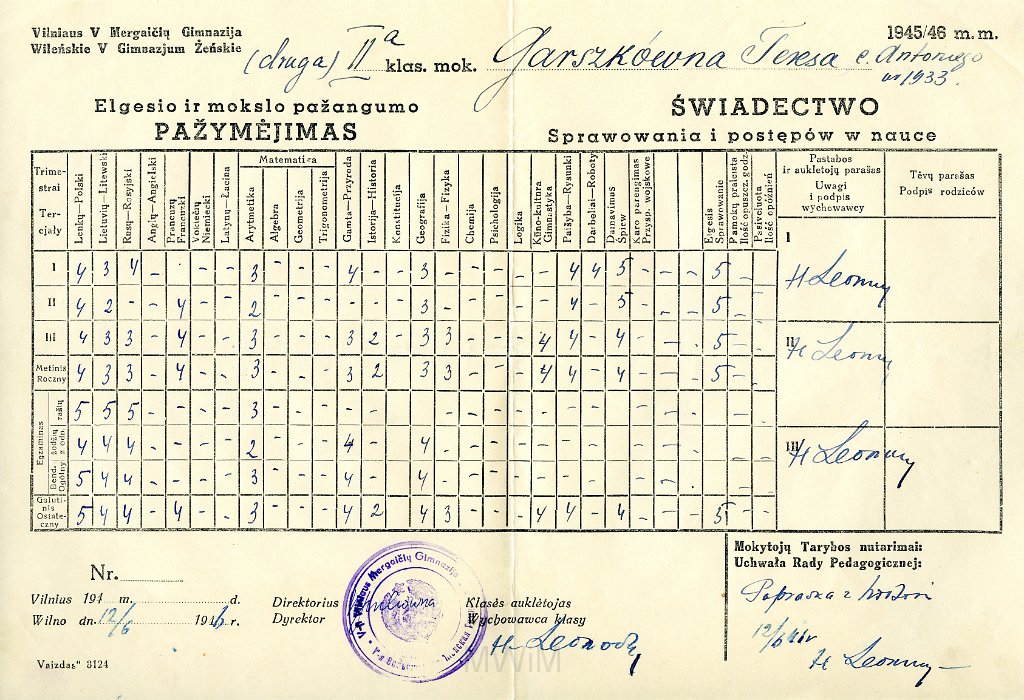 Vilniaus V Mergaičių Gimnazija
Wileńskie V Gimnazjum Żeńskie
1945/46 m. m.
(druga) II a klas. mok. Garszkówna Teresa c. Antoniego
ur 1933.
Elgesio ir mokslo pažangumo
PAŽYMĖJIMAS
ŚWIADECTWO
Sprawowania i postępów w nauce
Trimestrai
Tercjały
Lenkų—Polski
Lietuvių—Litewski
Rusų—Rosyjski
Anglų—Angielski
Prancuzų Francuski
Vokiečių Niemiecki
Lotynų—Łacina
Matematika
Arytmetika
Algebra
Geometrija
Trigonometrija
Gamta—Przyroda
Istorija—Historia
Konstitucija
Geografija
Fizika—Fizyka
Chemija
Psichologija
Logika
Kūno-kultura Gimnastyka
Paišyba—Rysunki
Darbeliai—Roboty
Dainavimas Śpiew
Karo parengimas Przysp. wojskowe
Elgesis Sprawowanie
Pamokų praleista Ilość opuszcz. godz.
Pasivėluota Ilość opóźnień
Pastabos ir auklėtojų parašas
Uwagi i podpis wychowawcy
Tėvų parašas
Podpis rodziców
I 4 3 4 - - - - 3 4 3 - - - 4 4 5 - - - 5 - -
II 4 2 - - 4 - - 2 - - - - - 3 - - - - - 4 - 5 - - - 5 - -
III 4 3 3 - 4 - - 3 - - - 3 2 3 3 - - - 4 4 - 4 - - - 5 - -
Metinis Roczny 4 3 3 - 4 - - 3 - - - 3 2 3 3 - - - 4 4 - 4 - - - 5 - -
Egzaminas
raštu 5 5 5 - - - - 3 - - - - - - - - -
žodžiu z odp. 4 4 4 - - - - 2 - - - 4 - 4 - - - -
Bend. Ogólny 5 4 4 - - - - 3 - - - 4 - 4 - - - -
Galutinis Ostateczny 5 4 4 - 4 - - 3 - - - 4 2 4 3 - - - 4 4 - 4 - - - 5 - -
I
II
III
Nr.
Vilnius 194 m. d.
Wilno dn. 12/6 1946 r.
Direktorius
Dyrektor
V-ji Vilniaus Mergaičių Gimnazija
Klasės auklėtojas
Wychowawca klasy
Mokytojų Tarybos nutarimai:
Uchwała Rady Pedagogicznej:
12/6
Vaizdas" 3124
MWiM